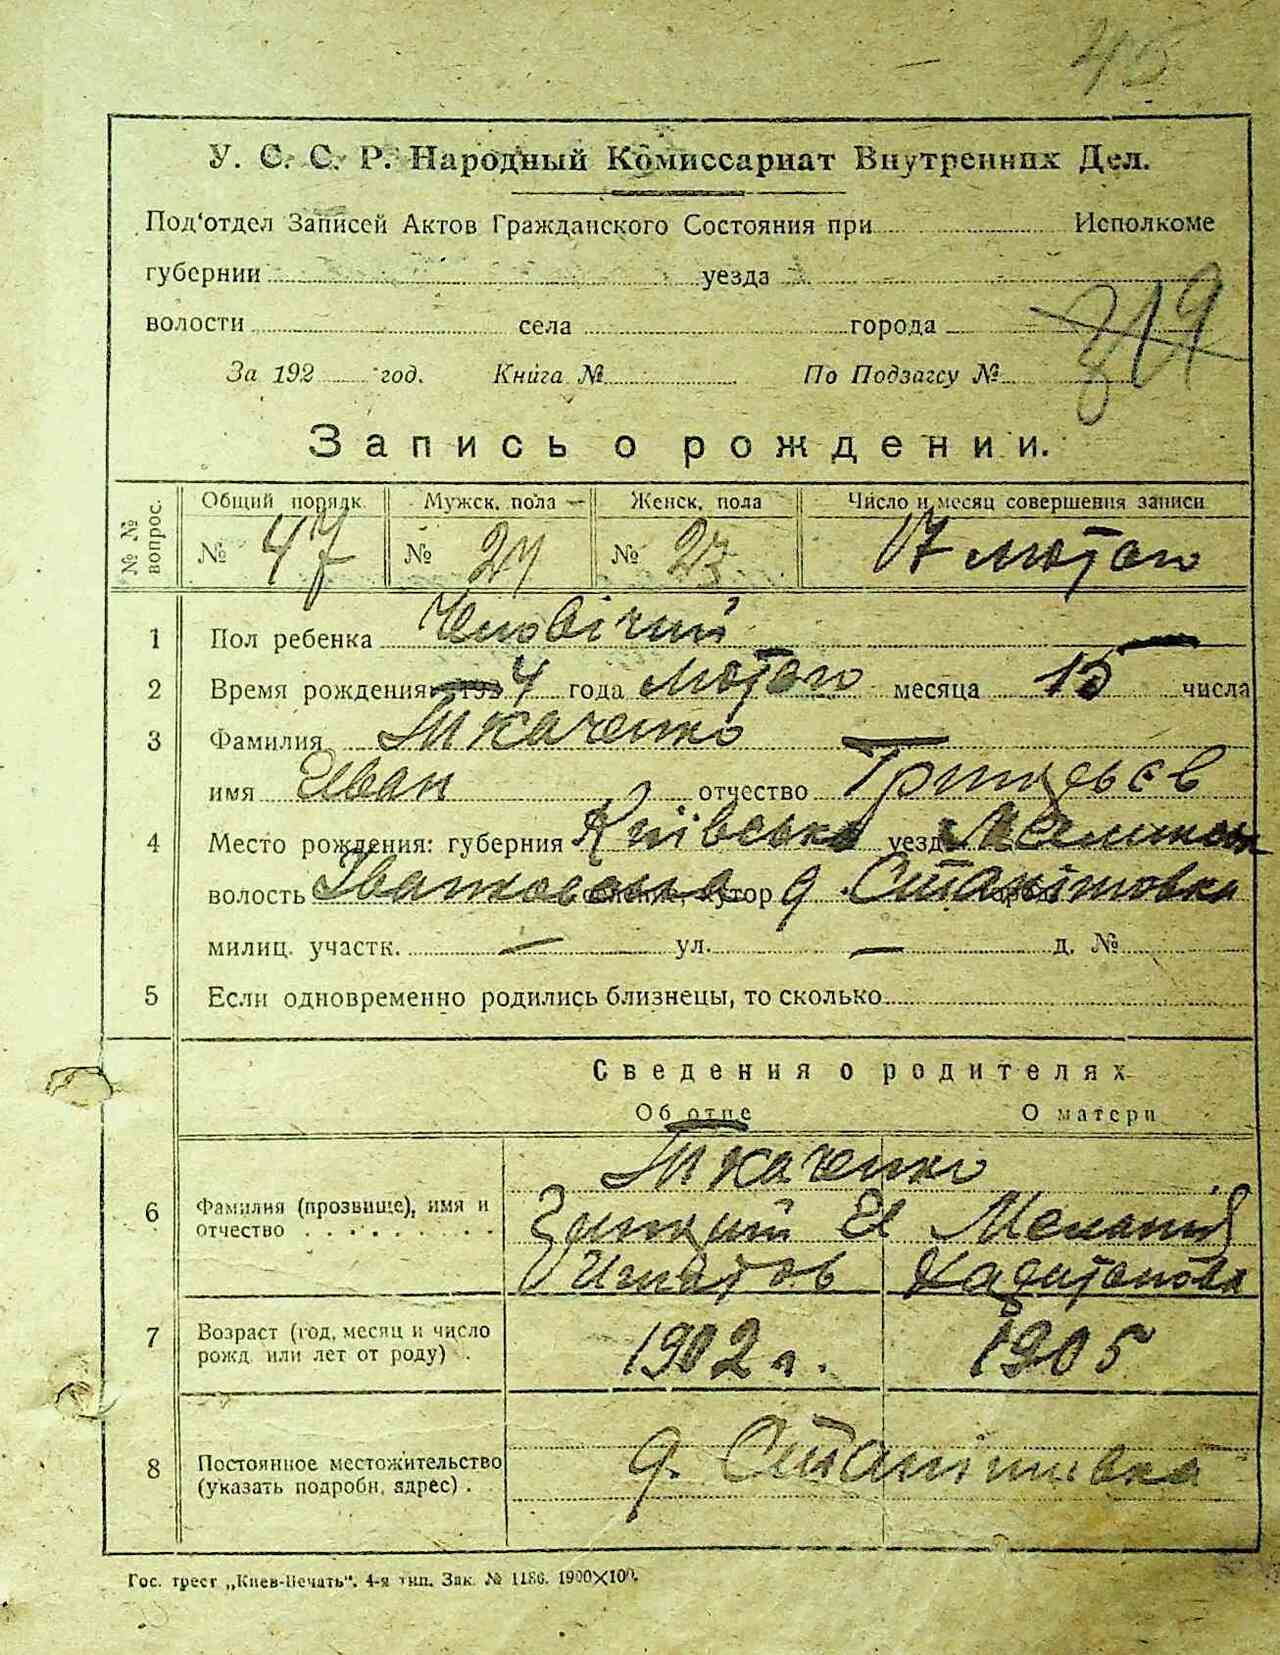 45
У. С. С. Р. Народный Комиссариат Внутренних Дел.
Под‘отдел Записей Актов Гражданского Состояния при Исполкоме
губернии уезда
волости села города
319
За 192 год. Книга № По Подзагсу №
Запись о рождении.
№ № вопрос. Общий порядк. Мужск. пола Женск. пола Число и месяц совершения записи
№ 47 № 24 № 23 17 лютого
1 Пол ребенка Чоловічий
2 Время рождения 1924 года лютого месяца 15 числа
3 Фамилия Ткаченко
имя Иван отчество
4 Место рождения: губерния Київська уезд
волость селение, хутор д.
милиц. участк. — ул. — д. №
5 Если одновременно родились близнецы, то сколько
Сведения о родителях
Об отце О матери
Ткаченко
6 Фамилия (прозвище), имя и
отчество . . . . . . . . .
7 Возраст (год, месяц и число 1902 р. 1905
рожд. или лет от роду) .
8 Постоянное местожительство д. Станішовка
(указать подробн. адрес) .
Гос. трест „Киев-Печать“. 4-я тип. Зак. № 1186. 1900×100.